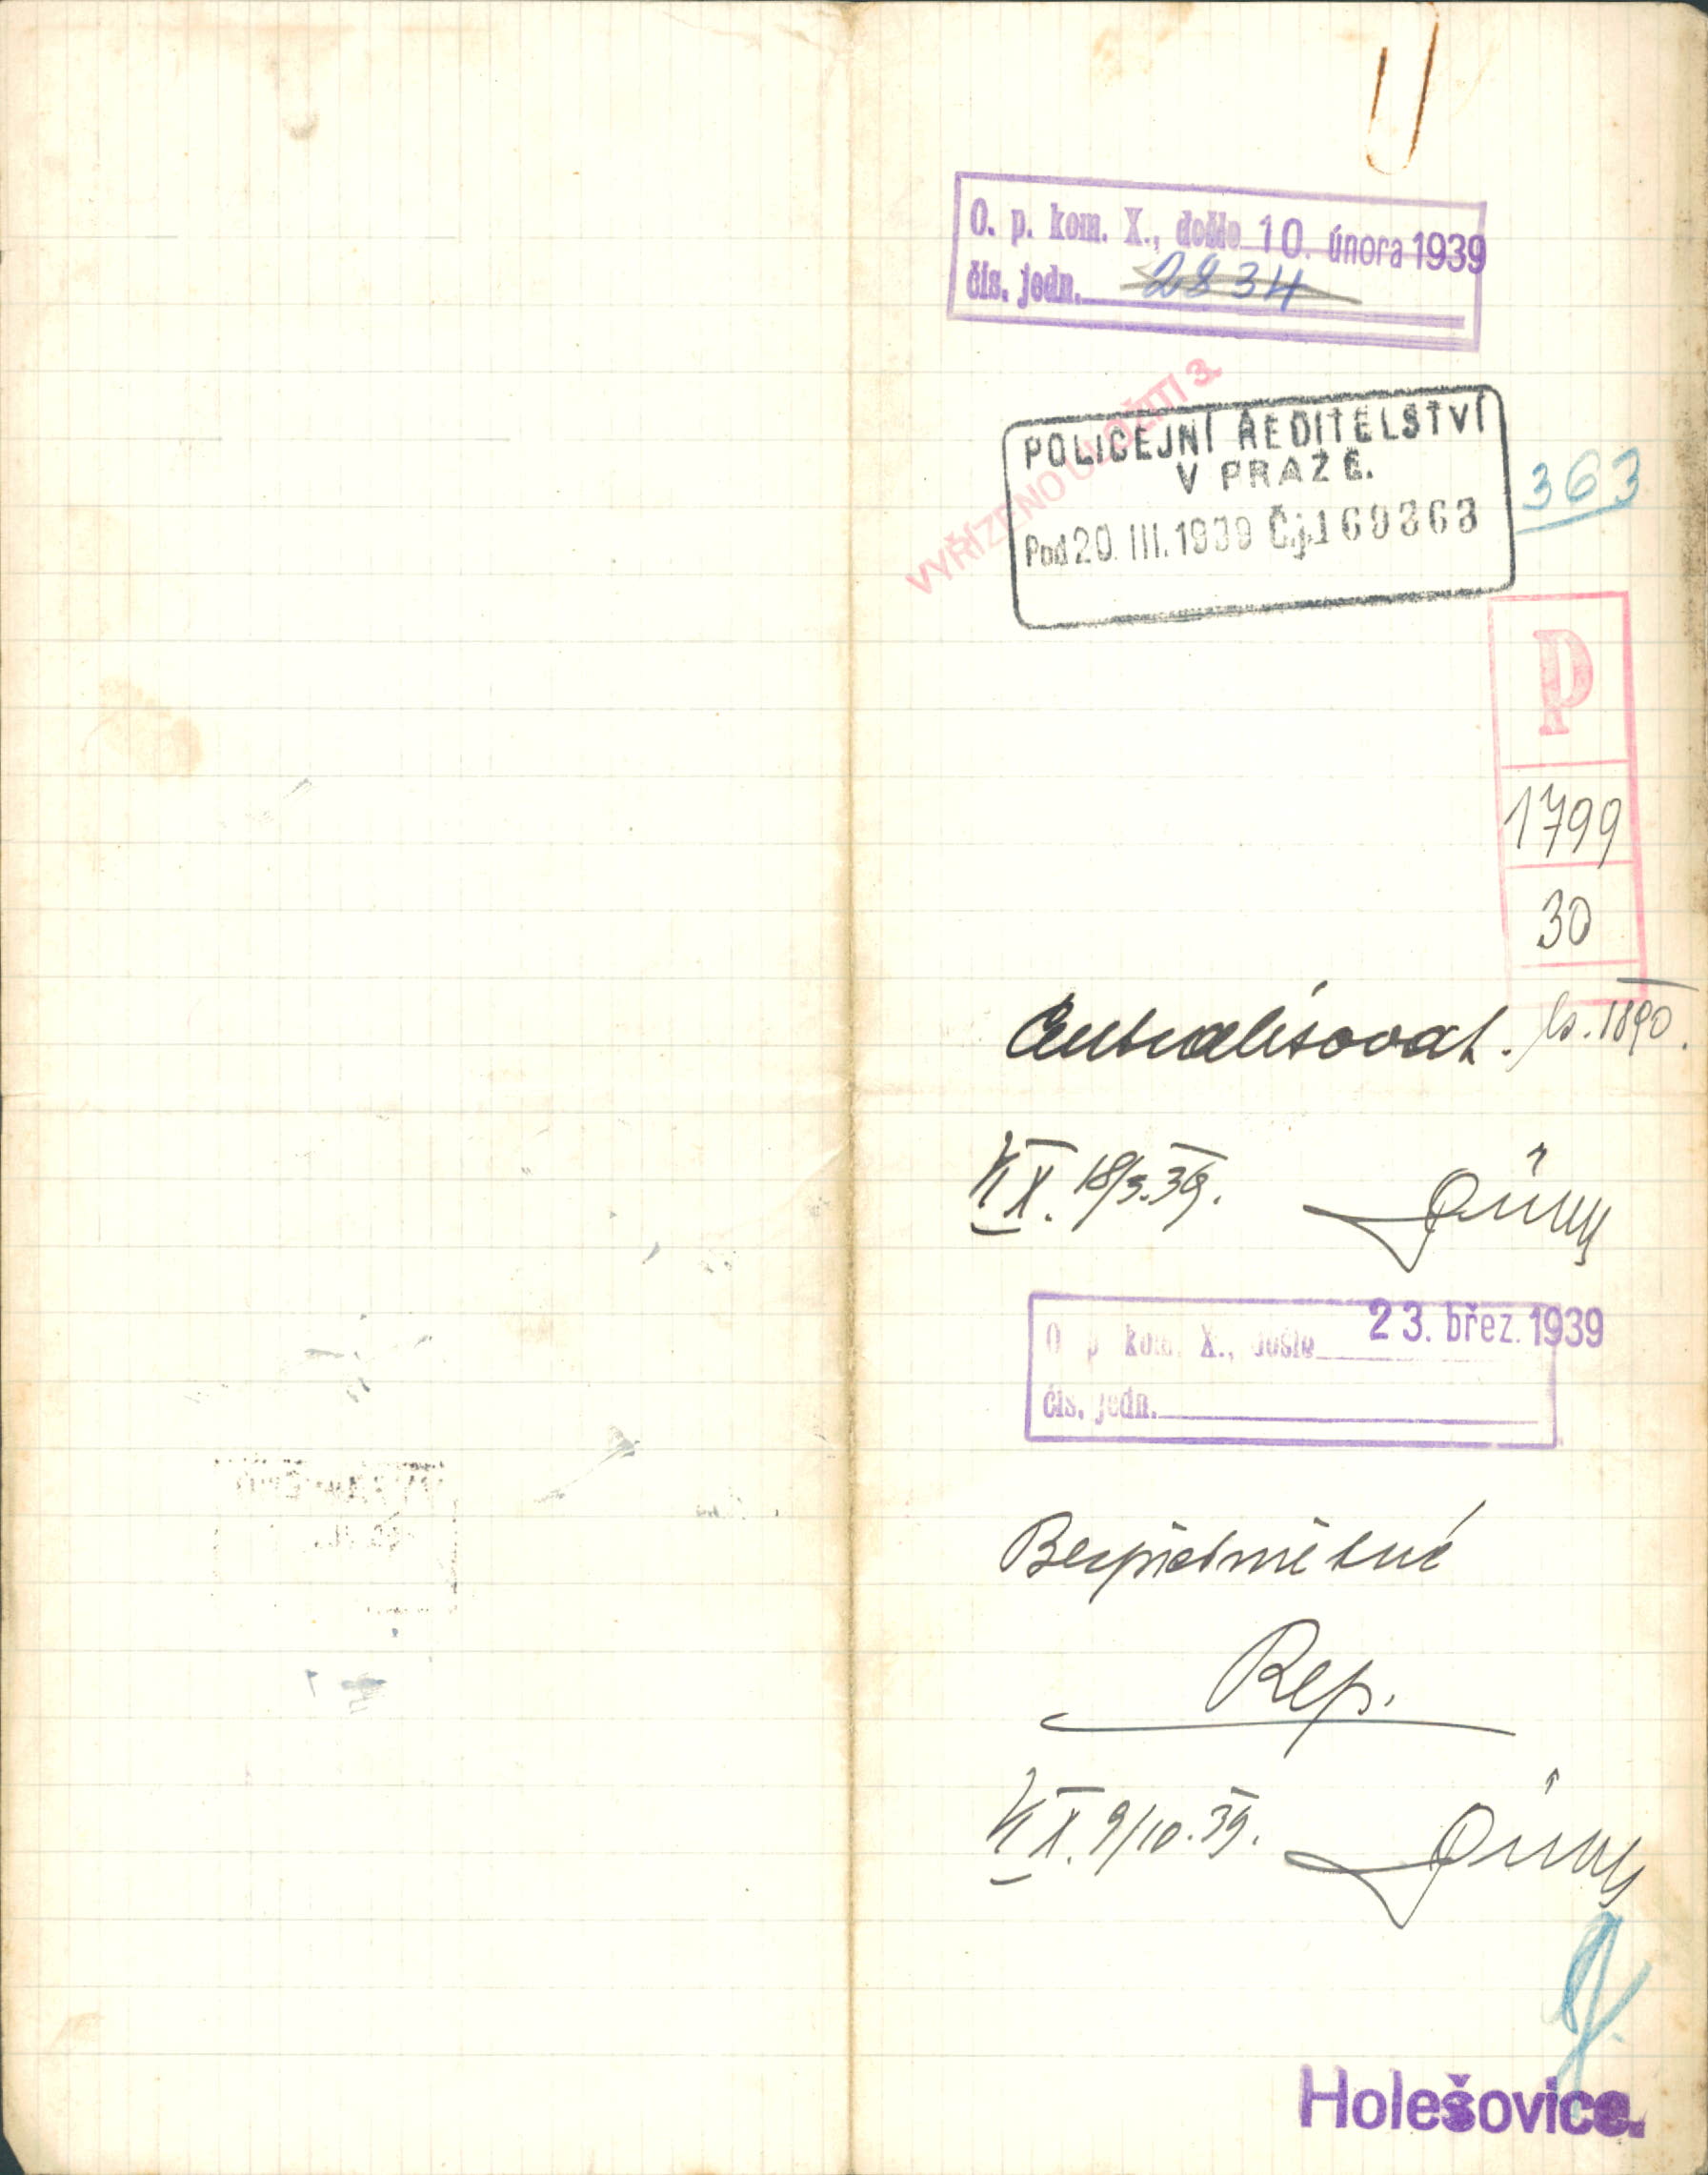 O. p. kom. X., došlo 10. února 1939
čís. jedn. 2834
VYŘÍZENO ULOŽITI 3.
POLICEJNÍ ŘEDITELSTVÍ
V PRAZE.
Pod 20. III. 1939 Čj. 169363
363
P
1799
30
Centralisovat.
18/3.39.
O. p. kom. X., došlo 23. břez. 1939
čís. jedn.
Bezpředmětné
Rep.
9/10.39.
Holešovice.